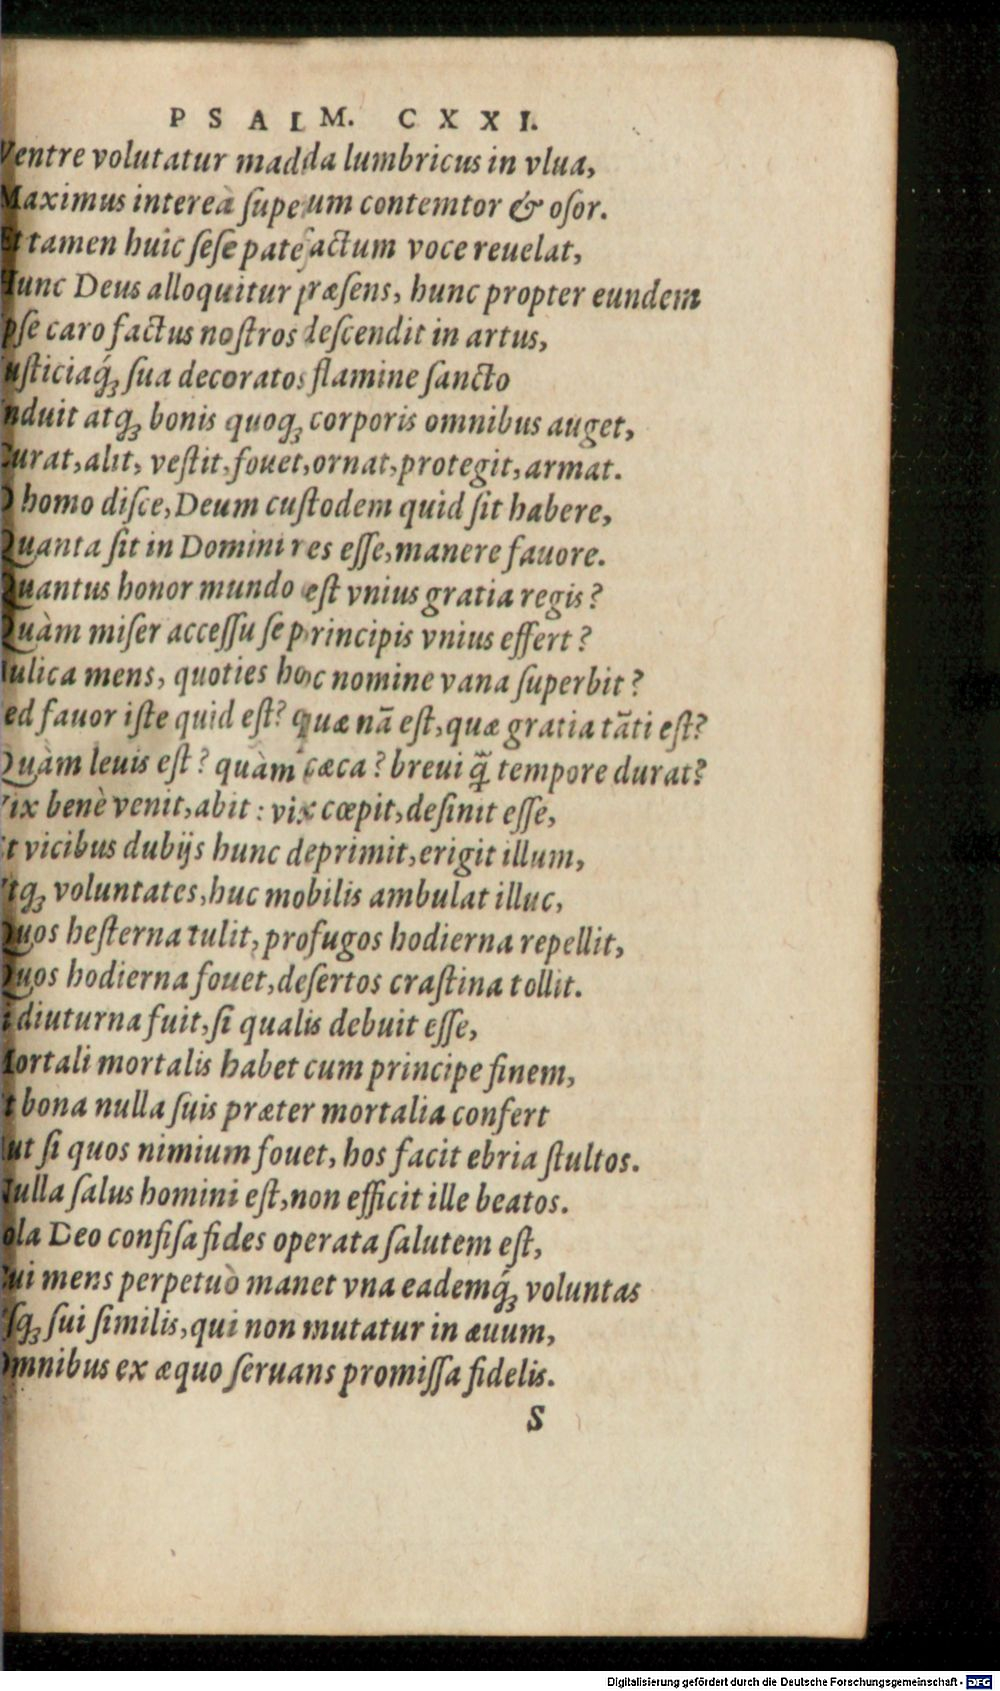 PSALM. CXXI.
Ventre volutatur madida lumbricus in vlua,
Maximus intereà ſuperum contemtor & oſor.
Et tamen huic ſeſe patefactum voce reuelat,
Hunc Deus alloquitur præſens, hunc propter eundem
Ipſe caro factus noſtros deſcendit in artus,
Iuſticiaq́ꝫ ſua decoratos flamine ſancto
Induit atqꝫ bonis quoqꝫ corporis omnibus auget,
Curat, alit, veſtit, fouet, ornat, protegit, armat.
O homo diſce, Deum cuſtodem quid ſit habere,
Quanta ſit in Domini res eſſe, manere fauore.
Quantus honor mundo eſt vnius gratia regis?
Quàm miſer acceſſu ſe principis vnius effert?
Aulica mens, quoties hoc nomine vana ſuperbit?
Sed fauor iſte quid eſt? quæ nā eſt, quæ gratia tāti eſt?
Quàm leuis eſt? quàm cæca? breui q̄̃ tempore durat?
Vix benè venit, abit: vix cœpit, deſinit eſſe,
Et vicibus dubijs hunc deprimit, erigit illum,
Atqꝫ voluntates, huc mobilis ambulat illuc,
Quos heſterna tulit, profugos hodierna repellit,
Quos hodierna fouet, deſertos craſtina tollit.
Si diuturna fuit, ſi qualis debuit eſſe,
Mortali mortalis habet cum principe finem,
Et bona nulla ſuis præter mortalia confert
Aut ſi quos nimium fouet, hos facit ebria ſtultos.
Nulla ſalus homini eſt, non efficit ille beatos.
Sola Deo confiſa fides operata ſalutem eſt,
Cui mens perpetuò manet vna eademq́ꝫ voluntas
Vſqꝫ ſui ſimilis, qui non mutatur in æuum,
Omnibus ex æquo ſeruans promiſſa fidelis.
S
Digitalisierung gefördert durch die Deutsche Forschungsgemeinschaft - DFG